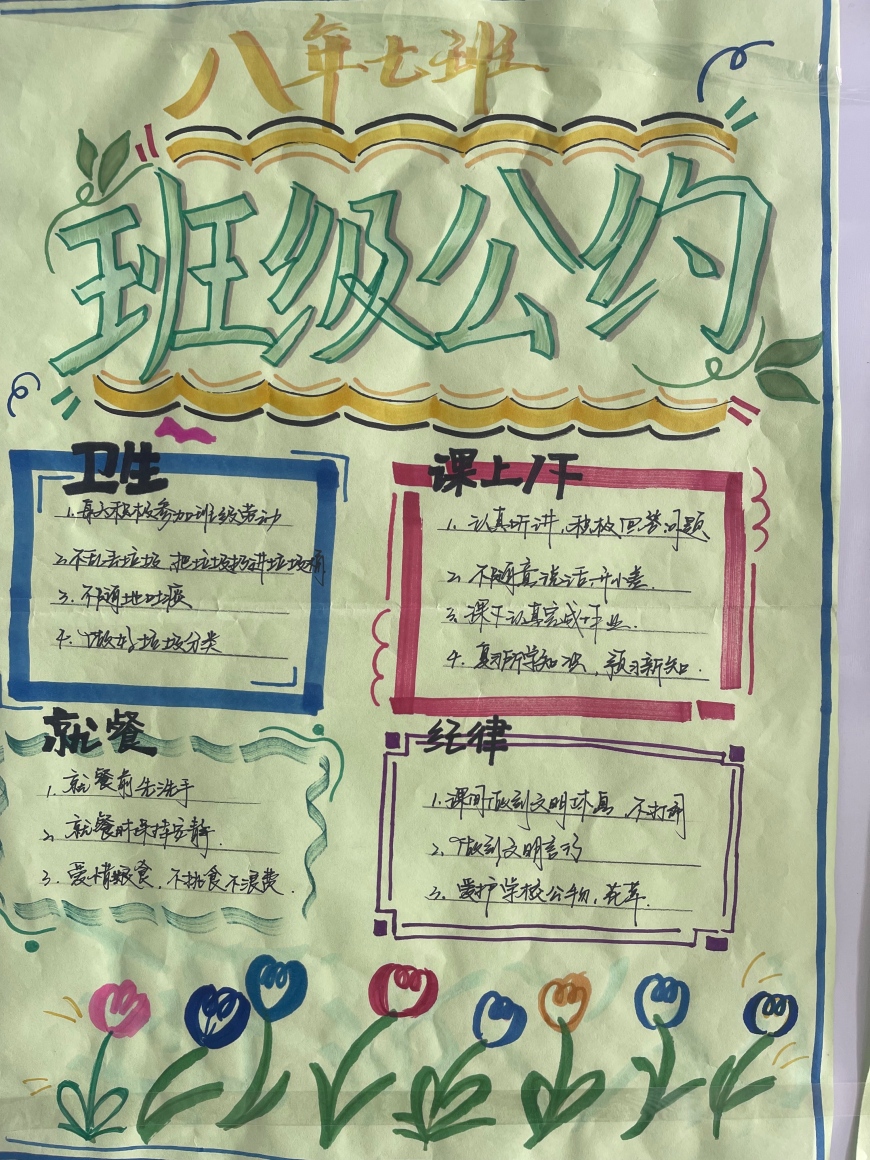 八年七班
班级公约
卫生
1.每人积极参加班级劳动
2.不乱丢垃圾,把垃圾扔进垃圾桶
3.不随地吐痰
4.做好垃圾分类
课上/下
1.认真听讲,积极回答问题
2.不随意说话开小差.
3.课下认真完成作业.
4.复习所学知识,预习新知.
就餐
1.就餐前先洗手
2.就餐时保持安静.
3.爱惜粮食,不挑食不浪费.
纪律
1.课间做到文明休息,不打闹
2.做到文明言行
3.爱护学校公物,花草.